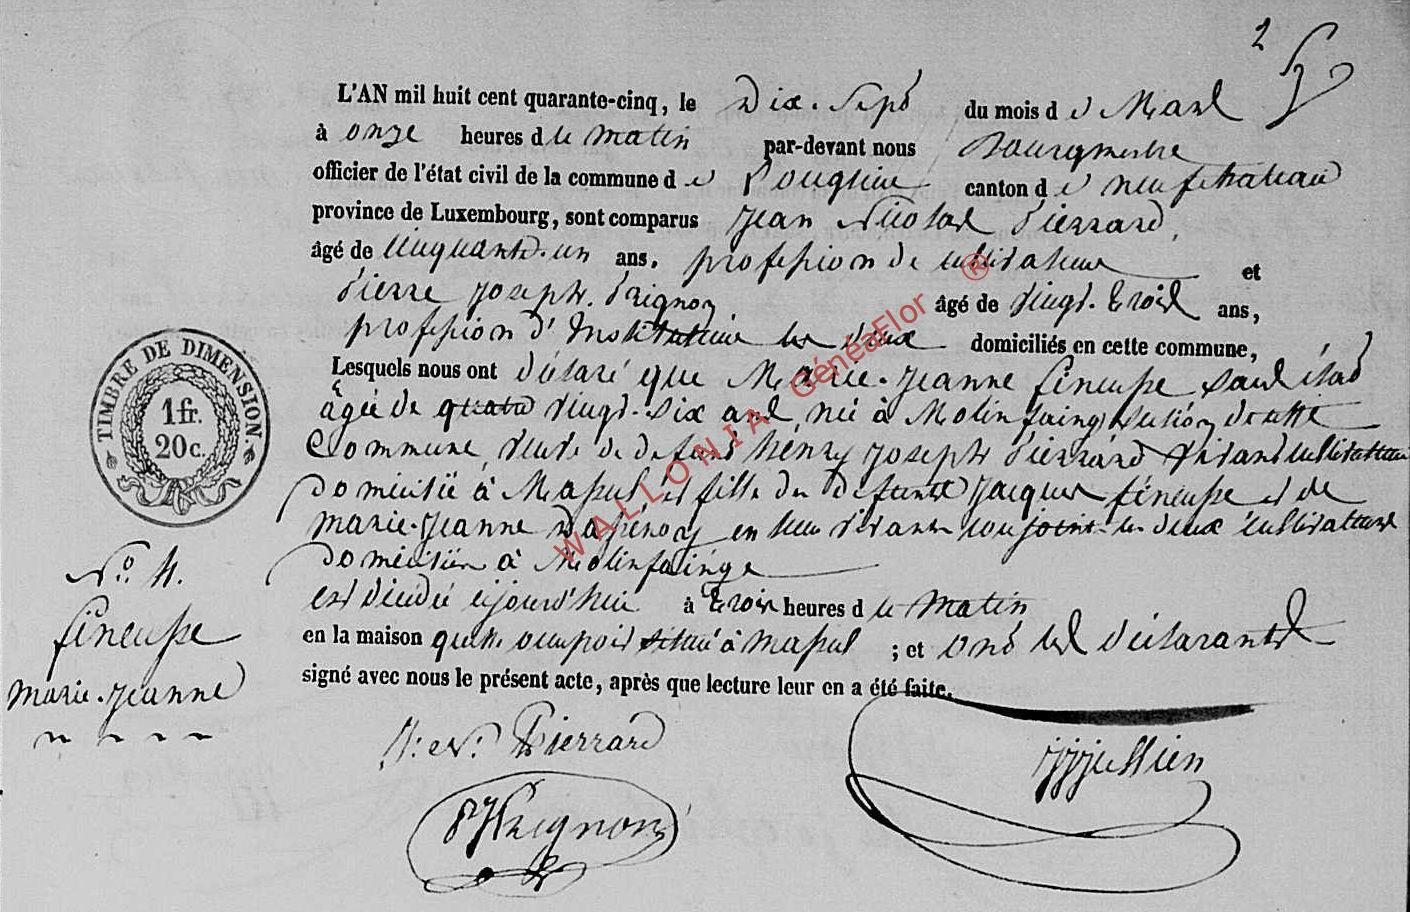 2
L'AN mil huit cent quarante-cinq, le Dix-Sept du mois d e Mars
à onze heures d u matin par-devant nous Bourgmestre
officier de l'état civil de la commune d e Longlier canton d e neufchateau
province de Luxembourg, sont comparus Jean Nicolas Pierrard,
âgé de Cinquante-un ans, profession de cultivateur et
Pierre Joseph Grignon âgé de vingt-trois ans,
profession d'Instituteur les deux domiciliés en cette commune,
Lesquels nous ont déclaré que Marie-Jeanne fineusse sans état
âgée de quatre vingt-six ans, née à Molinfaing section de cette
Commune, veuve de défunt henry Joseph Pierrard vivant cultivateur
domicilié à Massul et fille des défunts Jacques fineusse et de
marie-Jeanne en leur vivant conjoint les deux cultivateurs
domiciliés à Molinfainge
est décédée aujourd'hui à trois heures d u matin
en la maison qu'elle occupoit située à massul ; et ont les déclarants
signé avec nous le présent acte, après que lecture leur en a été faite.
TIMBRE DE DIMENSION.
1 fr.
20 c.
No. 4.
fineusse
marie-Jeanne
J: N: Pierrard
PJGrignon
WALLONIA GénéaFlor ®